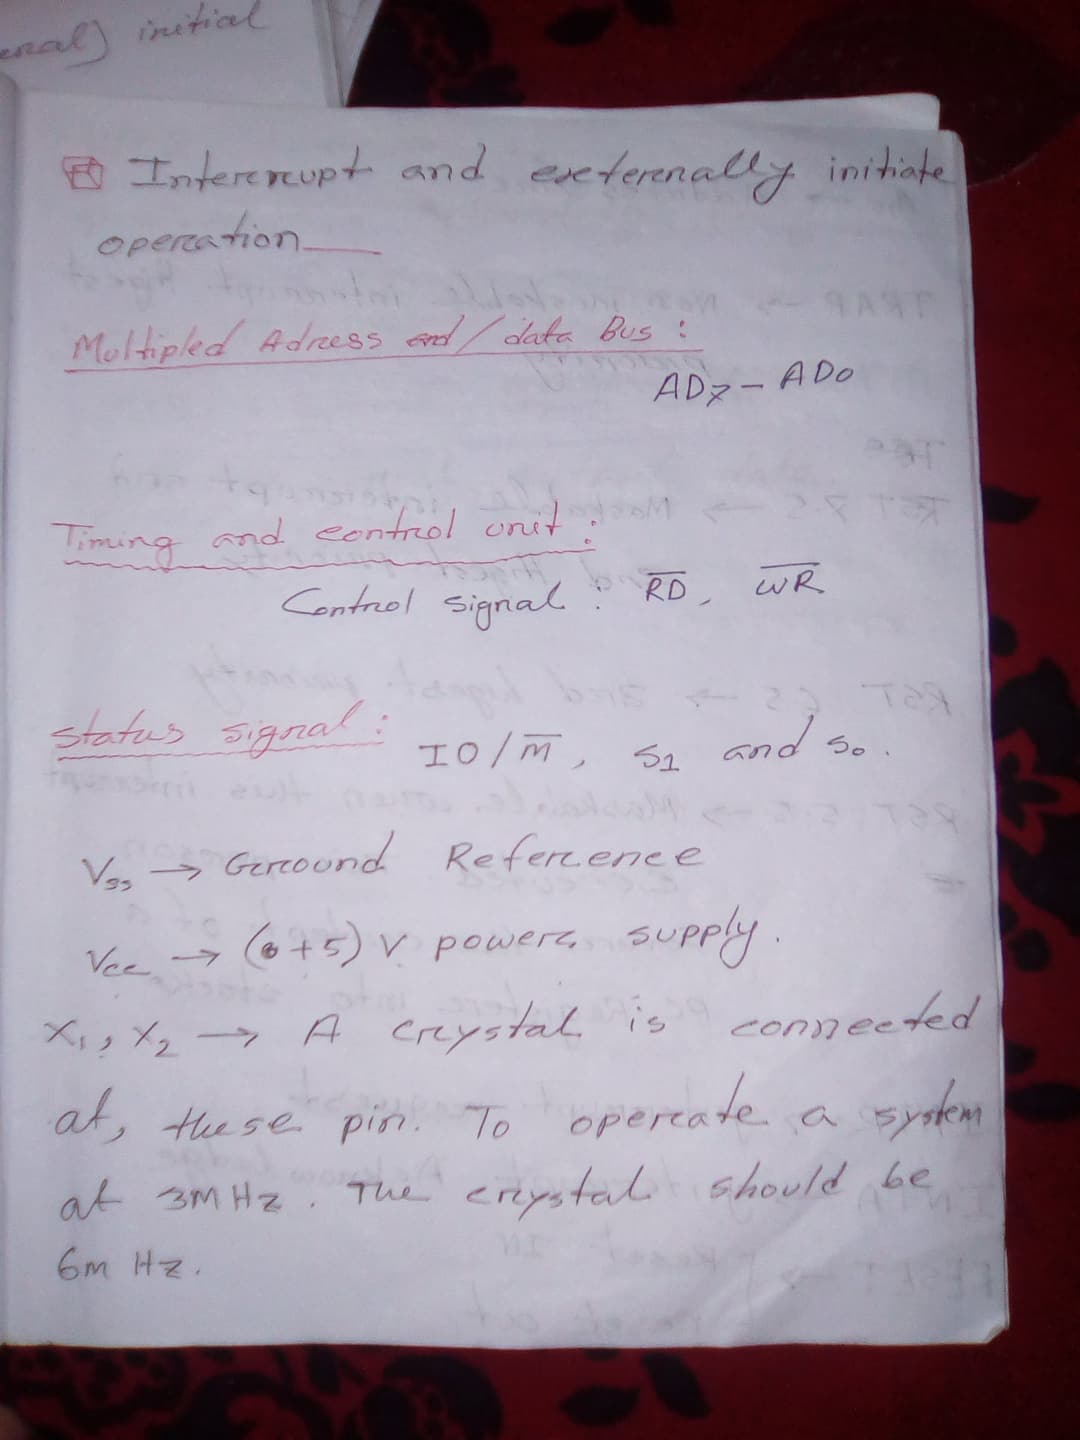 initial
Interrupt and externally initiate
operation
Multipled Adress and / data Bus :
AD7 - AD0
Timing and control unit :
Control signal : R̅D̅, W̅R̅
status signal :
IO/M̅, S1 and S0.
Vss → Ground Reference
Vcc → (+5) V power supply.
X1, X2 → A crystal is connected
at, these pin. To operate a system
at 3MHz. The crystal should be
6m Hz.